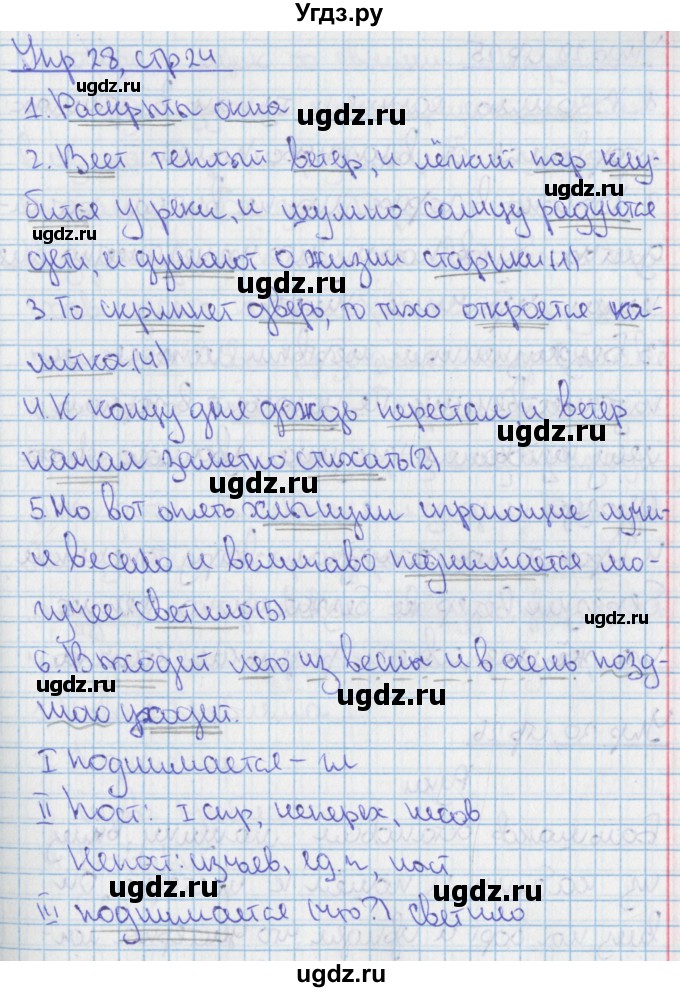 Угдз.ру
Упр 28, стр 24
ugdz.ru
1. Раскрыты окна ugdz.ru
2. Веет теплый ветер, и лёгкий пар клу-
ugdz.ru
ugdz.ru
бится у реки, и шумно солнцу радуются
ugdz.ru
дети, и думают о жизни старики (1)
ugdz.ru
3. То скрипнет дверь, то тихо откроется ка-
ugdz.ru
литка. (4)
4. К концу дня дождь перестал, и ветер
ugdz.ru
начал заметно стихать (2)
ugdz.ru
5. Но вот опять хлынули играющие лучи-
и весело и величаво поднимается мо-
ugdz.ru
гучее светило (5)
ugdz.ru
6. Выходит лето из весны и в осень позд-
ugdz.ru
ugdz.ru
нюю уходит.
I поднимается – гл
II Пост: I спр, неперех, несов
ugdz.ru
Непост: изъяв, ед.ч, наст
ugdz.ru
III поднимается (что?) светило
ugdz.ru
ugdz.ru